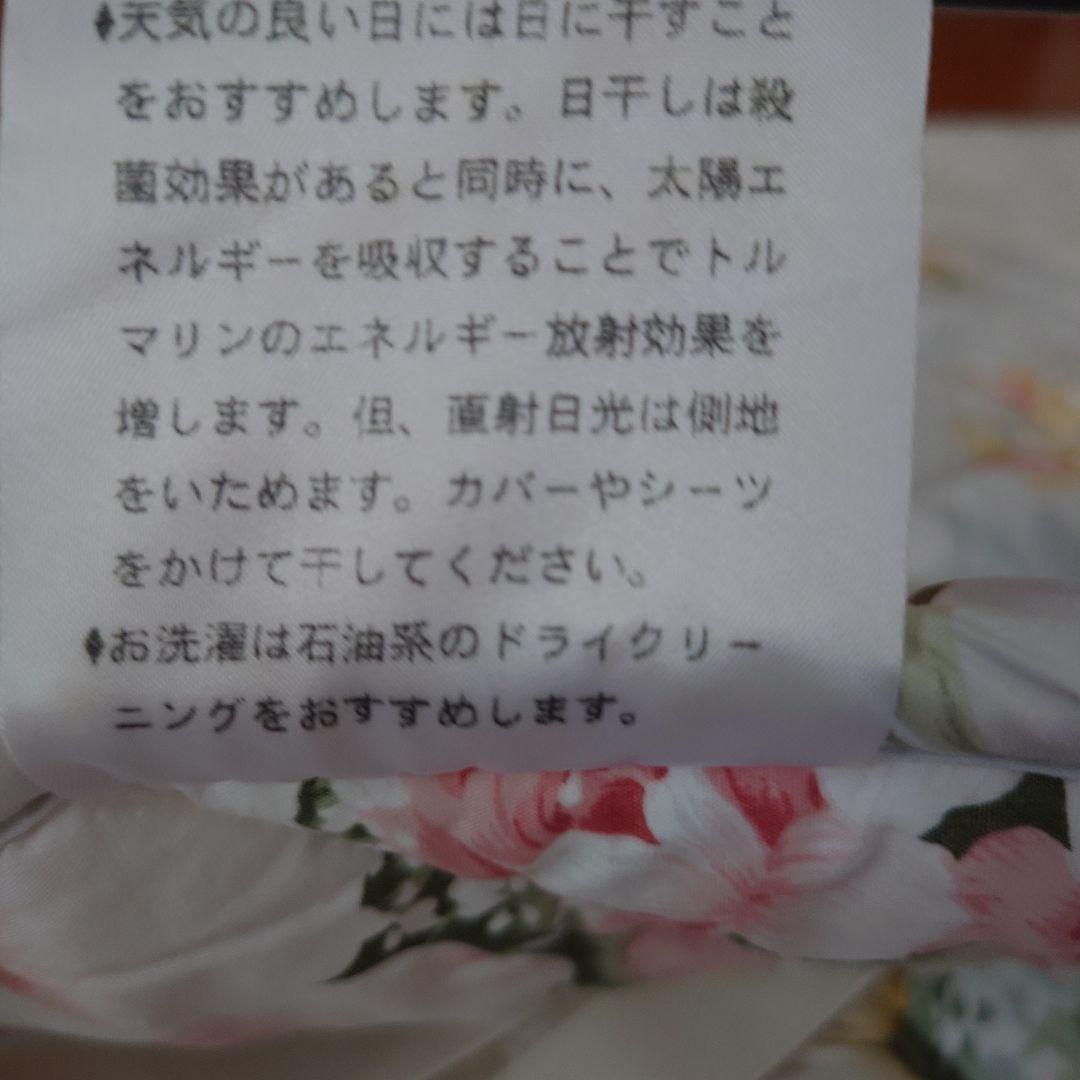 ♦天気の良い日には日に干すこと
をおすすめします。日干しは殺
菌効果があると同時に、太陽エ
ネルギーを吸収することでトル
マリンのエネルギー放射効果を
増します。但、直射日光は側地
をいためます。カバーやシーツ
をかけて干してください。
♦お洗濯は石油系のドライクリー
ニングをおすすめします。